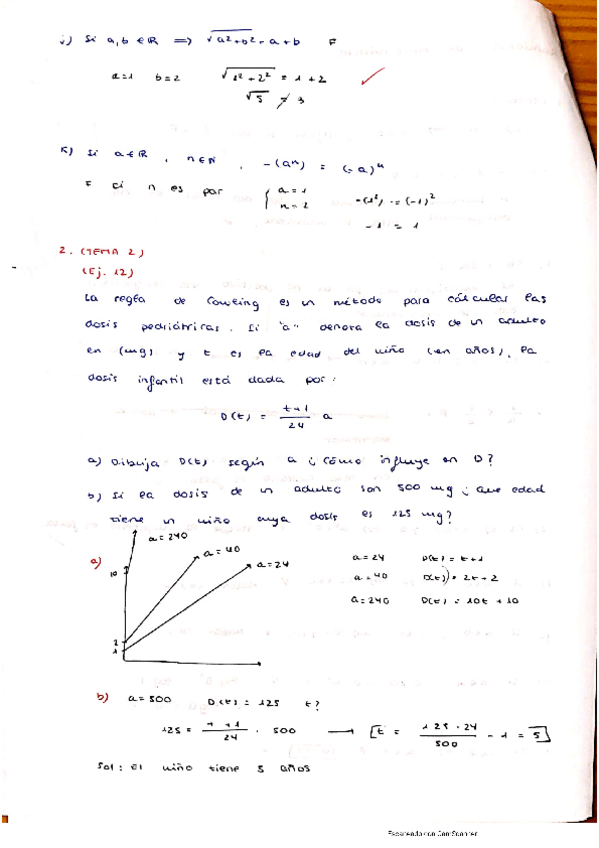 j) Si a, b ∈ ℝ ⟹ √(a²+b²) = a + b F
a = 1 b = 2 √(1² + 2²) = 1 + 2
√5 ≠ 3
K) Si a ∈ ℝ, n ∈ ℕ, -(aⁿ) = (-a)ⁿ
F si n es par { a = 1 n = 2 -(1²) = (-1)²
-1 = 1
2. (TEMA 2)
(Ej. 12)
La regla de Cowling es un método para cálcular las
dosis pediátricas. Si "a" denora la dosis de un adulto
en (mg) y t es la edad del niño (en años), la
dosis infantil está dada por:
D(t) = (t+1)/24 a
a) Dibuja D(t) según a ¿Cómo influye en D?
b) Si la dosis de un adulto son 500 mg ¿que edad
tiene un niño cuya dosis es 125 mg?
a)
a = 240
a = 40
a = 24
10
2
1
a = 24 D(t) = t + 1
a = 40 D(t) = 2t + 2
a = 240 D(t) = 10t + 10
b) a = 500 D(t) = 125 t?
125 = (t+1)/24 · 500 ⟶ [t = (125 · 24)/500 - 1 = 5]
Sol: El niño tiene 5 años
Escaneado con CamScanner